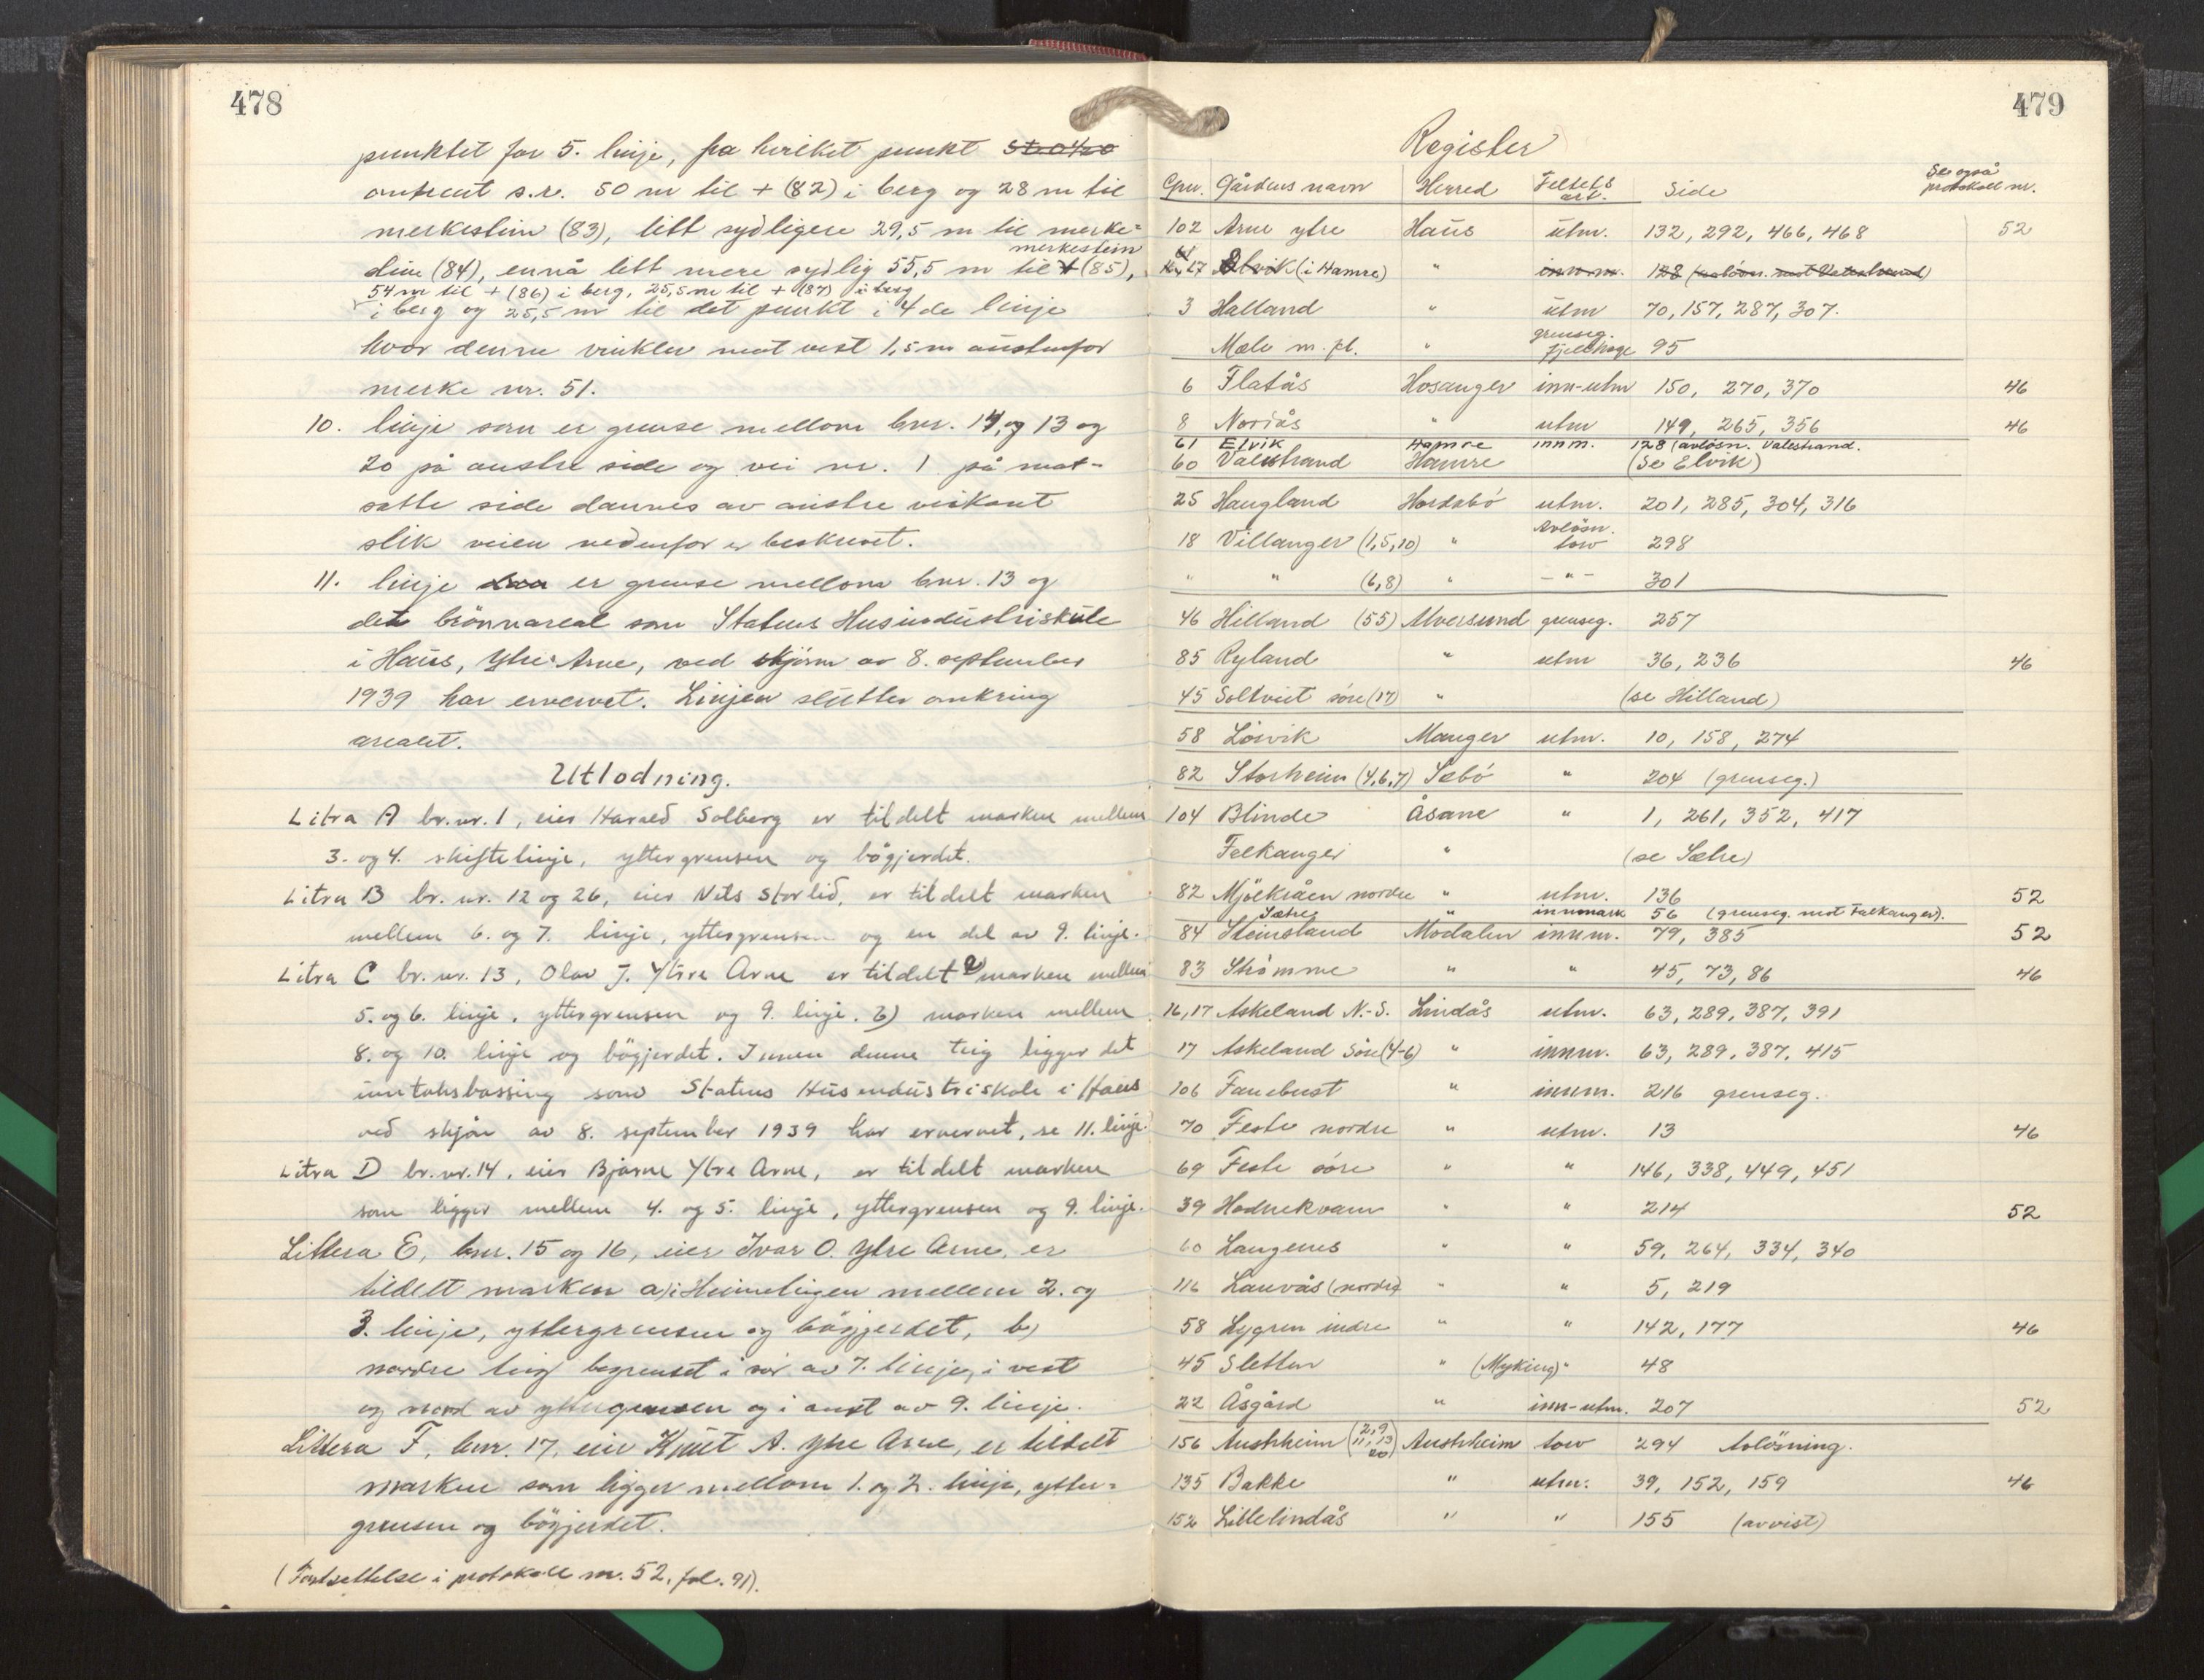 478
punktet for 5. linje, fra hvilket punkt
omtrent s.v. 50 m til + (82) i berg og 28 m til
merkestein (83), litt sydligere 29,5 m til merke=
merkestein
stein (84), ennå litt mere sydlig 55,5 m til + (85),
54 m til + (86) i berg, 25,5 m til + (87) i berg
i berg og 25,5 m til det punkt i 4de linje
hvor denne vinkler mot vest 1,5 m austenfor
merke nr. 51.
10. linje som er grense mellom bnr. 14, og 13 og
20 på austre side og vei nr. 1 på mot-
satte side dannes av austre veikant
slik veien nedenfor er beskrevet.
11. linje er grense mellom bnr. 13 og
det brönnareal som Statens Husindustriskule
i Haus, Ytre Arne, ved skjönn av 8. september
1939 har ervervet. Linjen slutter omkring
arealet.
Utlodning.
Litra A br.nr. 1, eier Harald Solberg er tildelt marken mellem
3. og 4. skiftelinje, yttergrensen og bögjerdet.
Litra B br. nr. 12 og 26, eier Nils Storlid, er tildelt marken
mellem 6. og 7. linje, yttergrensen og en del av 9. linje.
Litra C br. nr. 13, Olav J. Ytre Arne er tildelt a) marken mellem
5. og 6. linje, yttergrensen og 9. linje. b) marken mellem
8. og 10. linje og bögjerdet. Innen denne teig ligger det
inntaksbasseng som Statens Husindustriskole i Haus
ved skjön av 8. september 1939 har ervervet, se 11. linje.
Litra D br.nr. 14, eier Bjarne Ytre Arne, er tildelt marken
som ligger mellem 4. og 5. linje, yttergrensen og 9. linje.
Littera E, bnr. 15 og 16, eier Ivar O. Ytre Arne, er
tildelt marken a) i Heimeteigen mellem 2. og
3. linje, yttergrensen og bögjerdet, b)
nordre teig begrenset i sör av 7. linje, i vest
og nord av yttergrensen og i aust av 9. linje.
Littera F, bnr. 17, eier Knut A. Ytre Arne, er tildelt
marken som ligger mellom 1. og 2. linje, ytter=
grensen og bögjerdet.
(Fortsettelse i protokoll nr. 52, fol. 91).
479
Register
Gnr. Gårdens navn Herred Feltets art. Side Se også protokoll nr.
102 Arne ytre Haus utm. 132, 292, 466, 468 52
Elvik (i Hamre) " innm. 128 (avlösn. mot Valestrand)
3 Halland " utm 70, 157, 287, 307.
Mele m. fl. " grenseg. fjellhage 95
6 Flatås Hosanger inn-utm 150, 270, 370 46
8 Noriås " utm 149, 265, 356 46
61 Elvik Hamre innm. 128 (avlösn. Valestrand.
60 Valestrand Hamre (Se Elvik)
25 Haugland Hordabö utm. 201, 285, 304, 316
18 Villanger (1,5,10) " Avlösn. torv 298
" " (6,8) " -"- 301
46 Hilland (55) Alversund grenseg. 257
85 Ryland " utm 36, 236 46
45 Soltveit söre (17) " (se Hilland)
58 Lösvik Manger utm. 10, 158, 274
82 Storheim (4,6,7) Sæbö " 204 (grenseg.)
104 Blinde Åsane " 1, 261, 352, 417
Falkanger " (se Sætre)
82 Mjölkråen nordre " utm. 136 52
Sætre " innmark 56 (grenseg. mot Falkanger).
84 Steinsland Modalen innm. 79, 385 52
83 Strömme " " 45, 73, 86 46
16,17 Askeland N.-S. Lindås utm. 63, 289, 387, 391
17 Askeland Söre (4-6) " innm. 63, 289, 387, 415
106 Fanebust " innm. 216 grenseg.
70 Feste nordre " utm. 13 46
69 Feste söre " " 146, 338, 449, 451
39 Hodnekvam " " 214 52
60 Langenes " " 59, 264, 334, 340
116 Lauvås (nordre) " " 5, 219
58 Lygren indre " " 142, 177 46
45 Sletten " (Myking) " 48
22 Åsgård " inn-utm. 207 52
156 Austrheim (2,9 11,13 20) Austrheim torv 294 Avlösning.
135 Bakke " utm. 39, 152, 159 46
152 Lillelindås " " 155 (avvist)